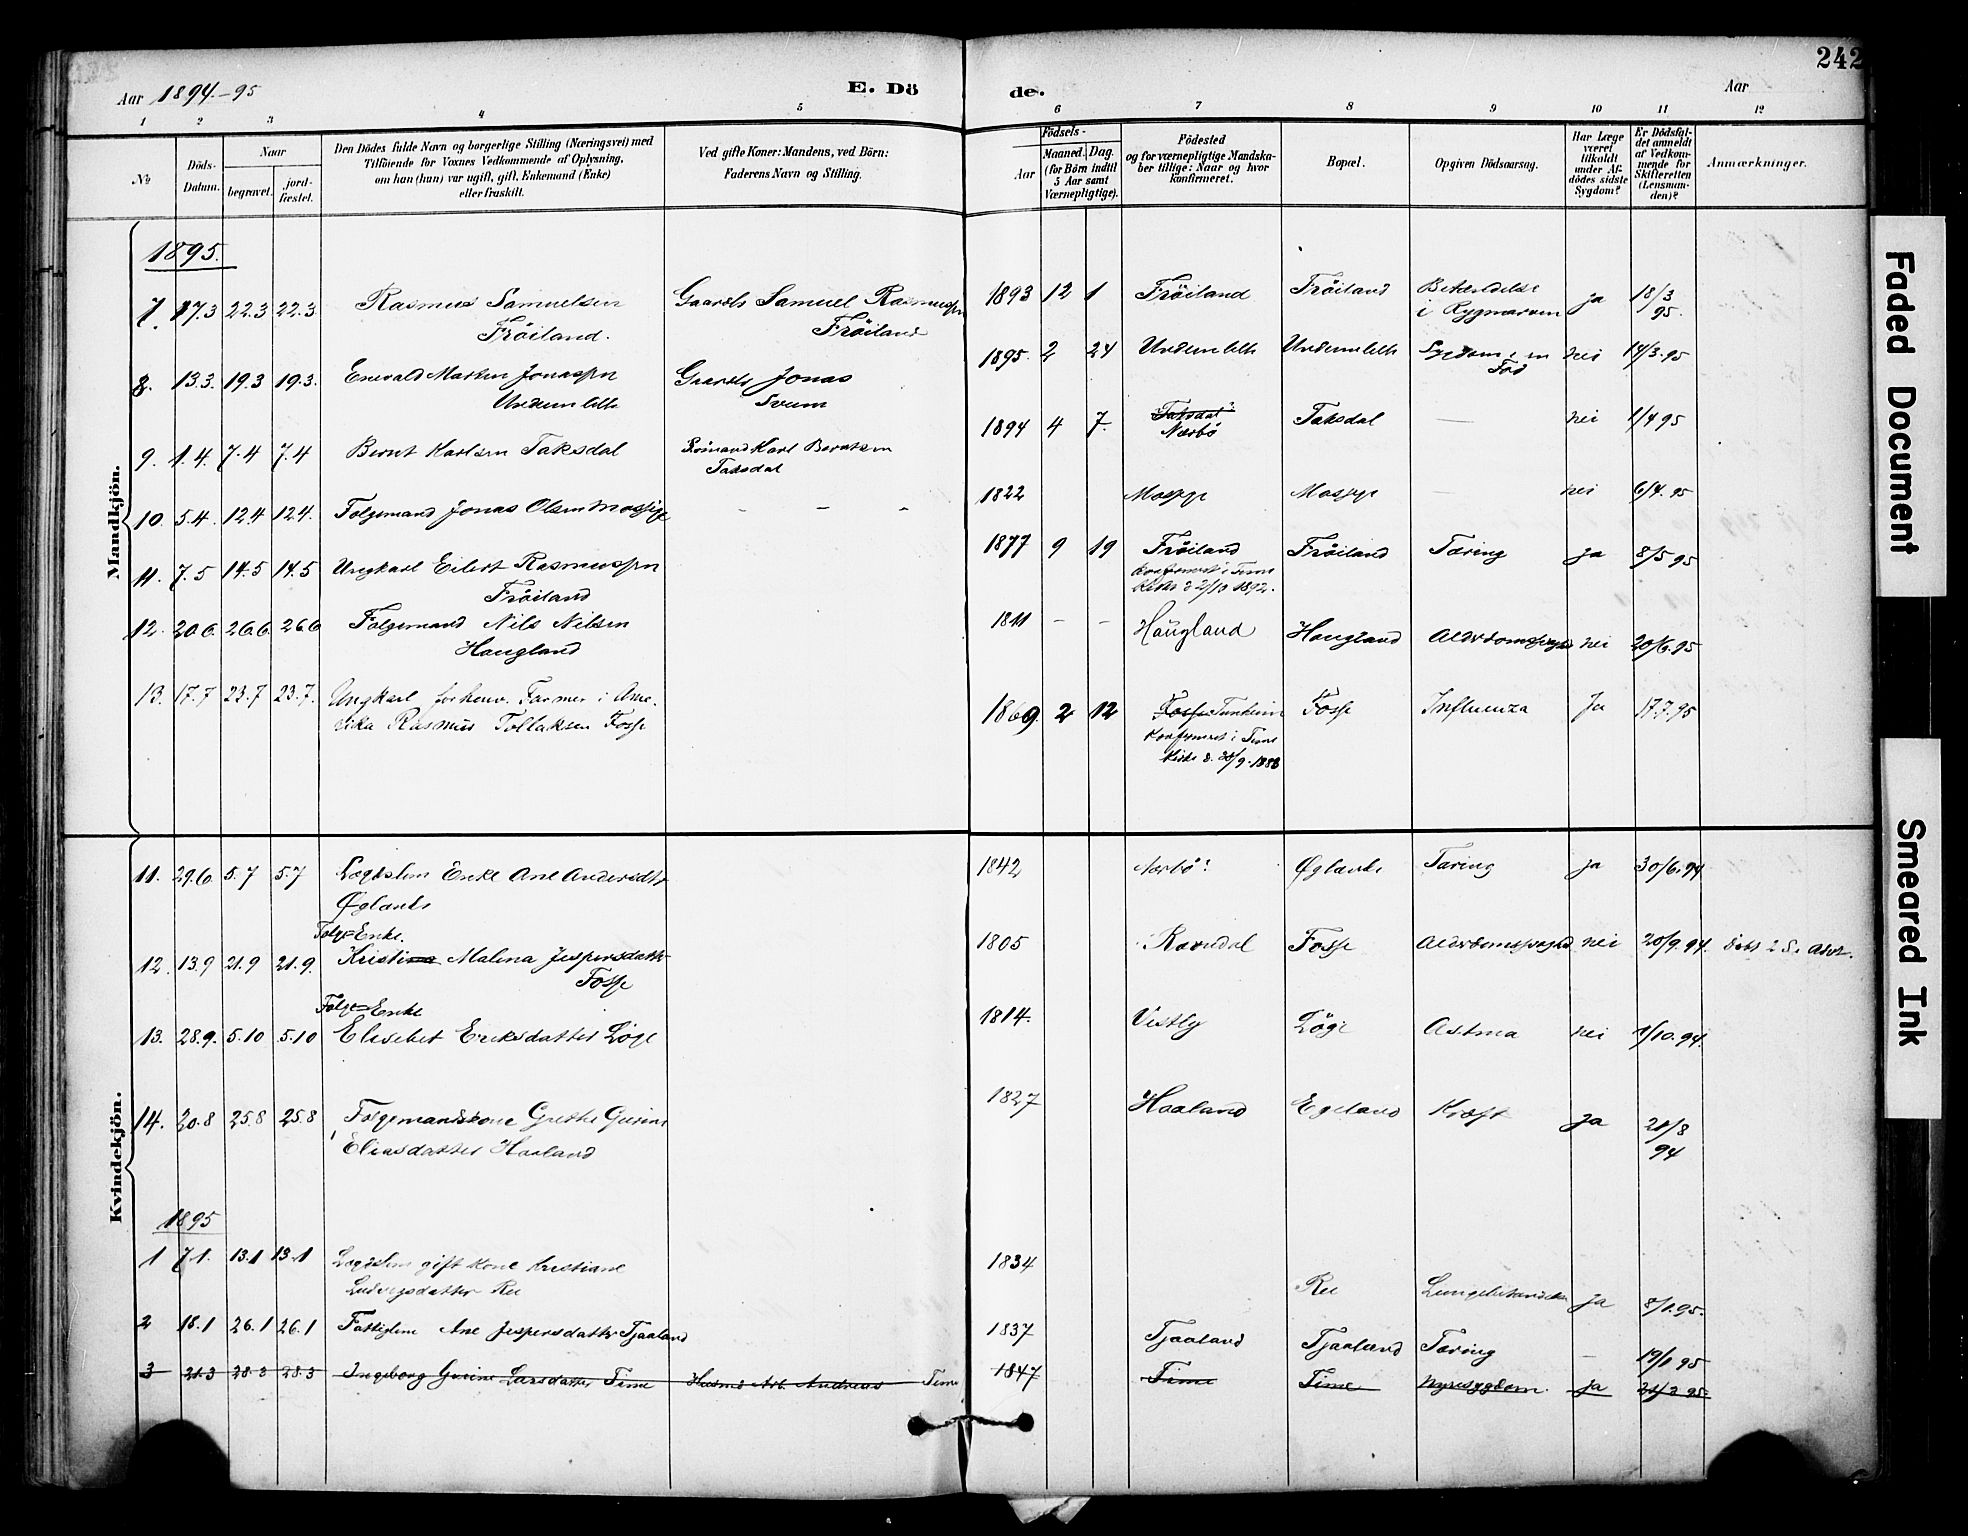 242
Aar 1894.-95
E. Döde.
Aar
1 2 3 4 5 6 7 8 9 10 11 12
No
Döds-Datum.
Naar
begravet.
jord-fæstet.
Den Dödes fulde Navn og borgerlige Stilling (Næringsvei) med
Tilföiende for Voxnes Vedkommende af Oplysning,
om han (hun) var ugift, gift, Enkemand (Enke)
eller fraskilt.
Ved gifte Koner: Mandens, ved Börn:
Faderens Navn og Stilling.
Födsels-
Aar
Maaned. Dag.
(for Börn indtil
5 Aar samt
Værnepligtige).
Födested
og for værnepligtige Mandska-
ber tillige: Naar og hvor
konfirmeret.
Bopæl.
Opgiven Dödsaarsag.
Har Læge
været
tilkaldt
under Af-
dödes sidste
Sygdom?
Er Dödsfal-
det anmeldt
af Vedkom-
mende for
Skifteretten
(Lensman-
den)?
Anmærkninger.
Mandkjön.
1895.
7. 17.3 22.3 22.3 Rasmus Samuelsen Gaardb Samuel Rasmussen 1893 12 1 Fröiland Fröiland Betændelse ja 18/3
Fröiland. Fröiland i Rygmarven 95.
8. 13.3. 19.3 19.3. Enevald Martin Jonassen Gaardb Jonas 1895. 2 24 Undemlelh Undemlelh nei 14/3.95
Undemlelh Svem
9. 1.4. 7.4 7.4 Bernt Karlsen Taksdal Karl Berntsen 1894 4 7. Taksdal Taksdal — nei 1/4 95
Taksdal Nærbö
10. 5.4. 12.4 12.4. Folgemand Jonas Olsen Mossige - - - 1822 Mossige Mossige — nei 6/4.95
11. 7.5 14.5 14.5 Ungkarl Eilert Rasmussen 1877 9 19 Fröiland Fröiland Tæring ja 8/5 95
Fröiland Konfirmeret i Time
Kirke d 2/10 1892.
12. 20.6. 26.6. 26.6 Folgemand Nils Nilsen 1811 - - Haugland Haugland Alderdomssvaghed nei 20/6.95
Haugland
13. 17.7 23.7 23.7. Ungkarl forhenv. Farmer i Ame- 1869. 2 12 Fosse Tunheim Fosse Influenza Ja 17.7.95
rika Rasmus Tollaksen Fosse Konfirmeret i Time
Kirke d. /9.1883
Kvindekjön.
11. 29.6 5.7 5.7 Lægdslem Enke Ane Andersdtr 1842 Nærbö? Øgland Tæring ja 30/6.94
Øgland
Folge=Enke.
12. 13.9 21.9 21.9. Kristina Malena Jespersdatter 1805 Ravndal Fosse Alderdomssvaghed nei 20/9.94.
Fosse
Folge=Enke
13. 28.9. 5.10 5.10 Elisebet Eriksdatter Löge 1814. Vestly Löge Astma nei 1/10.94.
14. 20.8 25.8 25.8 Folgemandskone Grethe Gurine 1827 Haaland Egeland Kræft ja 21/8
Eliasdatter Haaland 94
1895
1 7.1. 13.1 13.1 Lægdslem gift Kone Kristiane 1834
Ludvigsdatter Ree Ree Lungebetændelse ja 8/1.95.
2 18.1 26.1 26.1 Fattiglem Ane Jespersdatter Tjaaland 1837 Tjaaland Tjaaland Tæring — 19/1 95
3 21.3 28.3 28.3 Ingeborg Gurine Larsdatter Time Husmd Arb. Andreas Time 1847 Time Time Nyresygdom. ja 21/3 95.
Faded Document
Smeared Ink